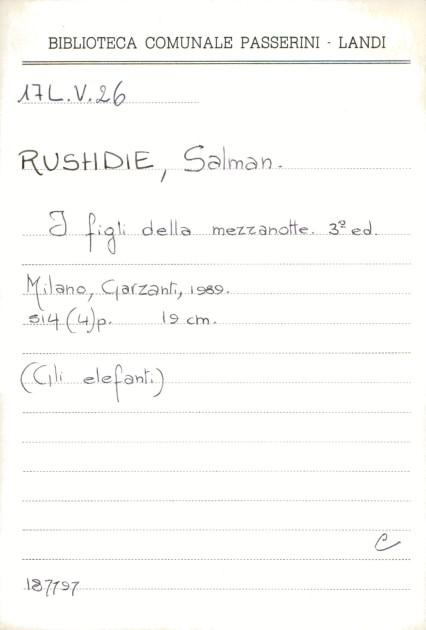 BIBLIOTECA COMUNALE PASSERINI - LANDI
17 L.V.26
RUSHDIE, Salman.
I figli della mezzanotte. 3ª ed.
Milano, Garzanti, 1989.
514 (4) p. 19 cm.
(Gli elefanti)
C
187797